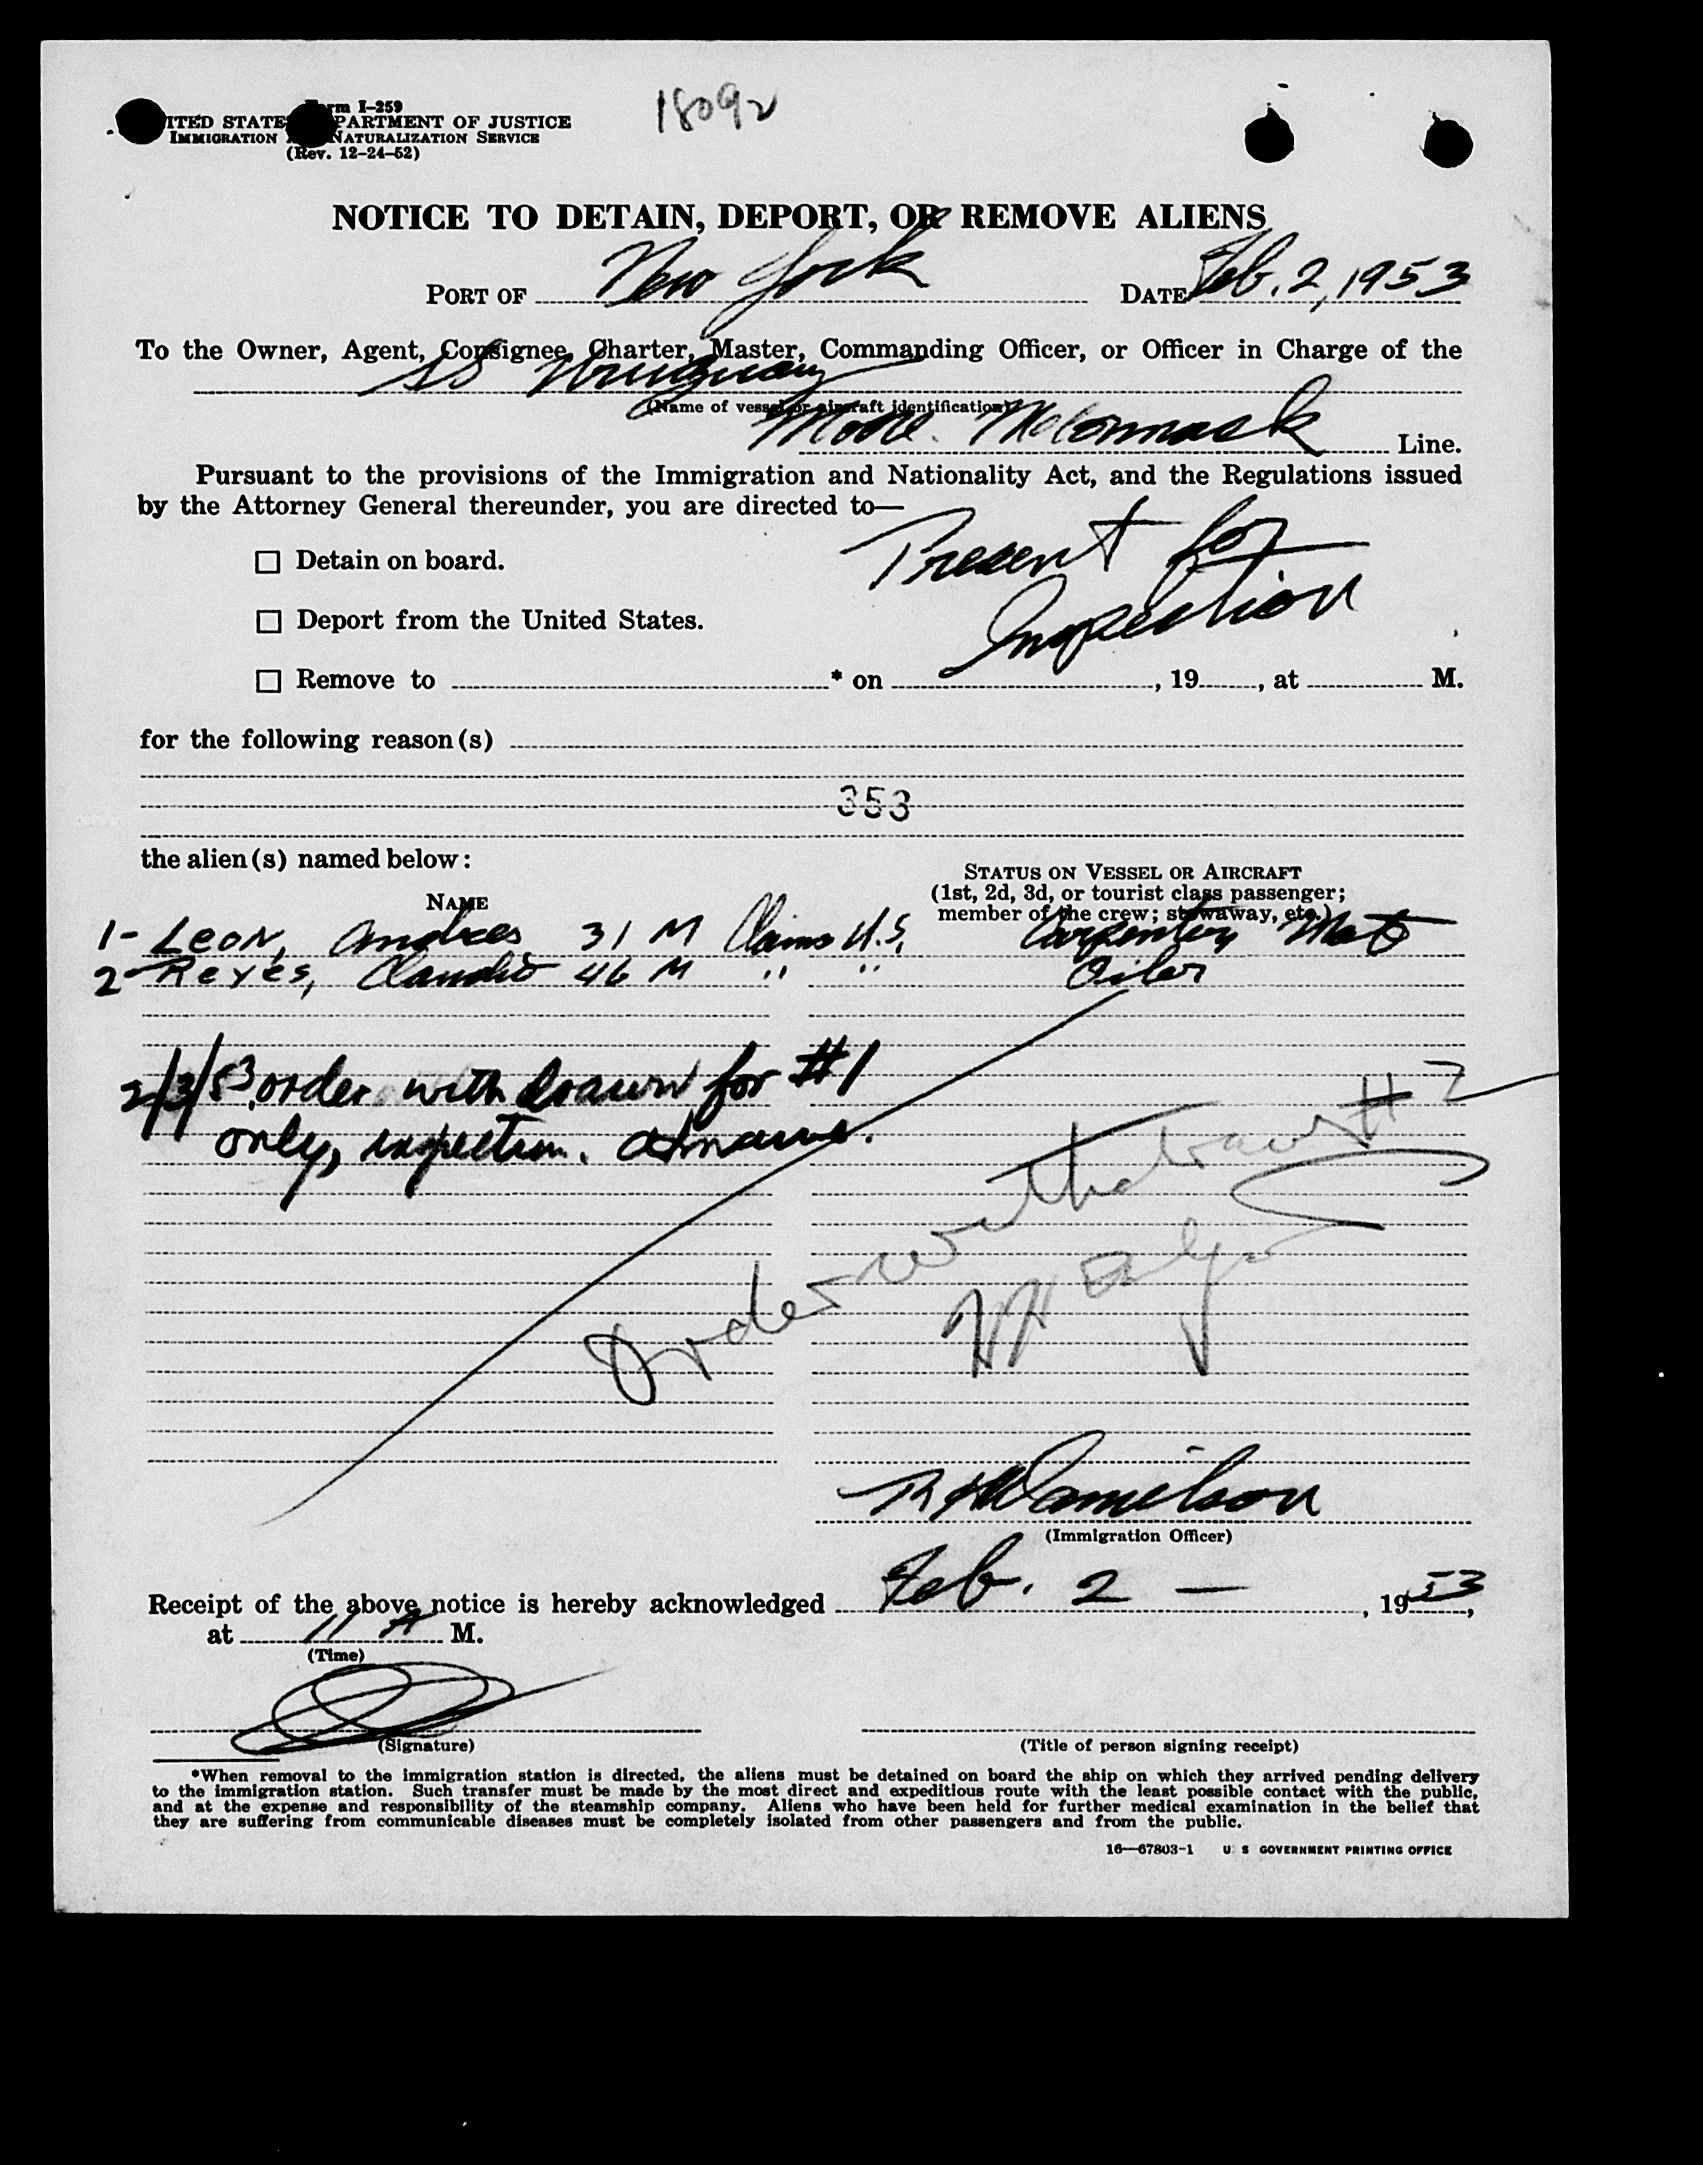 Form I-259
18092
UNITED STATES DEPARTMENT OF JUSTICE
IMMIGRATION AND NATURALIZATION SERVICE
(Rev. 12-24-52)
NOTICE TO DETAIN, DEPORT, OR REMOVE ALIENS
PORT OF New York DATE Feb. 2, 1953
To the Owner, Agent, Consignee, Charter, Master, Commanding Officer, or Officer in Charge of the
SS Uruguay
(Name of vessel or aircraft identification)
Moore McCormack Line.
Pursuant to the provisions of the Immigration and Nationality Act, and the Regulations issued
by the Attorney General thereunder, you are directed to—
Present for
☐ Detain on board.
Inspection
☐ Deport from the United States.
☐ Remove to * on , 19 , at M.
for the following reason(s)
353
the alien(s) named below:
STATUS ON VESSEL OR AIRCRAFT
(1st, 2d, 3d, or tourist class passenger;
NAME
member of the crew; stowaway, etc.)
1- Leon, Andres 31 M Claims U.S. Carpenters Mate
2- Reyes, Claudio 46 M " " Oiler
2/3/53 order withdrawn for #1
only, inspection.
Order withdrawn #2
(Immigration Officer)
Receipt of the above notice is hereby acknowledged Feb. 2 — , 1953,
at 11 A M.
(Time)
(Signature)
(Title of person signing receipt)
*When removal to the immigration station is directed, the aliens must be detained on board the ship on which they arrived pending delivery
to the immigration station. Such transfer must be made by the most direct and expeditious route with the least possible contact with the public,
and at the expense and responsibility of the steamship company. Aliens who have been held for further medical examination in the belief that
they are suffering from communicable diseases must be completely isolated from other passengers and from the public.
16—67803-1 U S GOVERNMENT PRINTING OFFICE